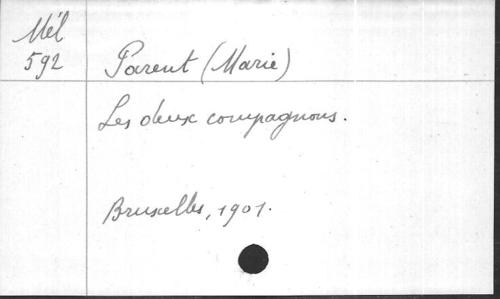 Mél
592
Parent (Marie)
Les deux compagnons.
Bruxelles, 1901.